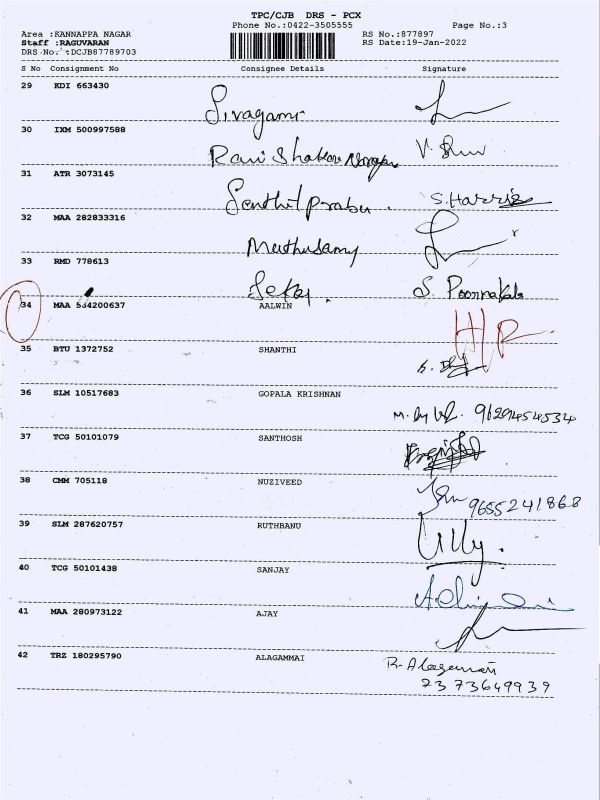 TPC/CJB DRS - PCX
Phone No.:0422-3505555 Page No.:3
Area :KANNAPPA NAGAR RS No.:877897
Staff :RAGUVARAN RS Date:19-Jan-2022
DRS No. :DCJB87789703
S No Consignment No Consignee Details Signature
29 KDI 663430
Sivagami
30 IXM 500997588
Ravi Shakar
31 ATR 3073145
Senthil prabu. S. Harris
32 MAA 282833316
Muthusamy
33 RMD 778613
Sekar. S. Poornakala
34 MAA 564200637 AALWIN
H/R
35 BTU 1372752 SHANTHI
36 SLM 10517683 GOPALA KRISHNAN
9629454534
37 TCG 50101079 SANTHOSH
38 CMM 705118 NUZIVEED
9655241868
39 SLM 287620757 RUTHBANU
40 TCG 50101438 SANJAY
41 MAA 280973122 AJAY
42 TRZ 180295790 ALAGAMMAI
R. Alagamai
2373649939